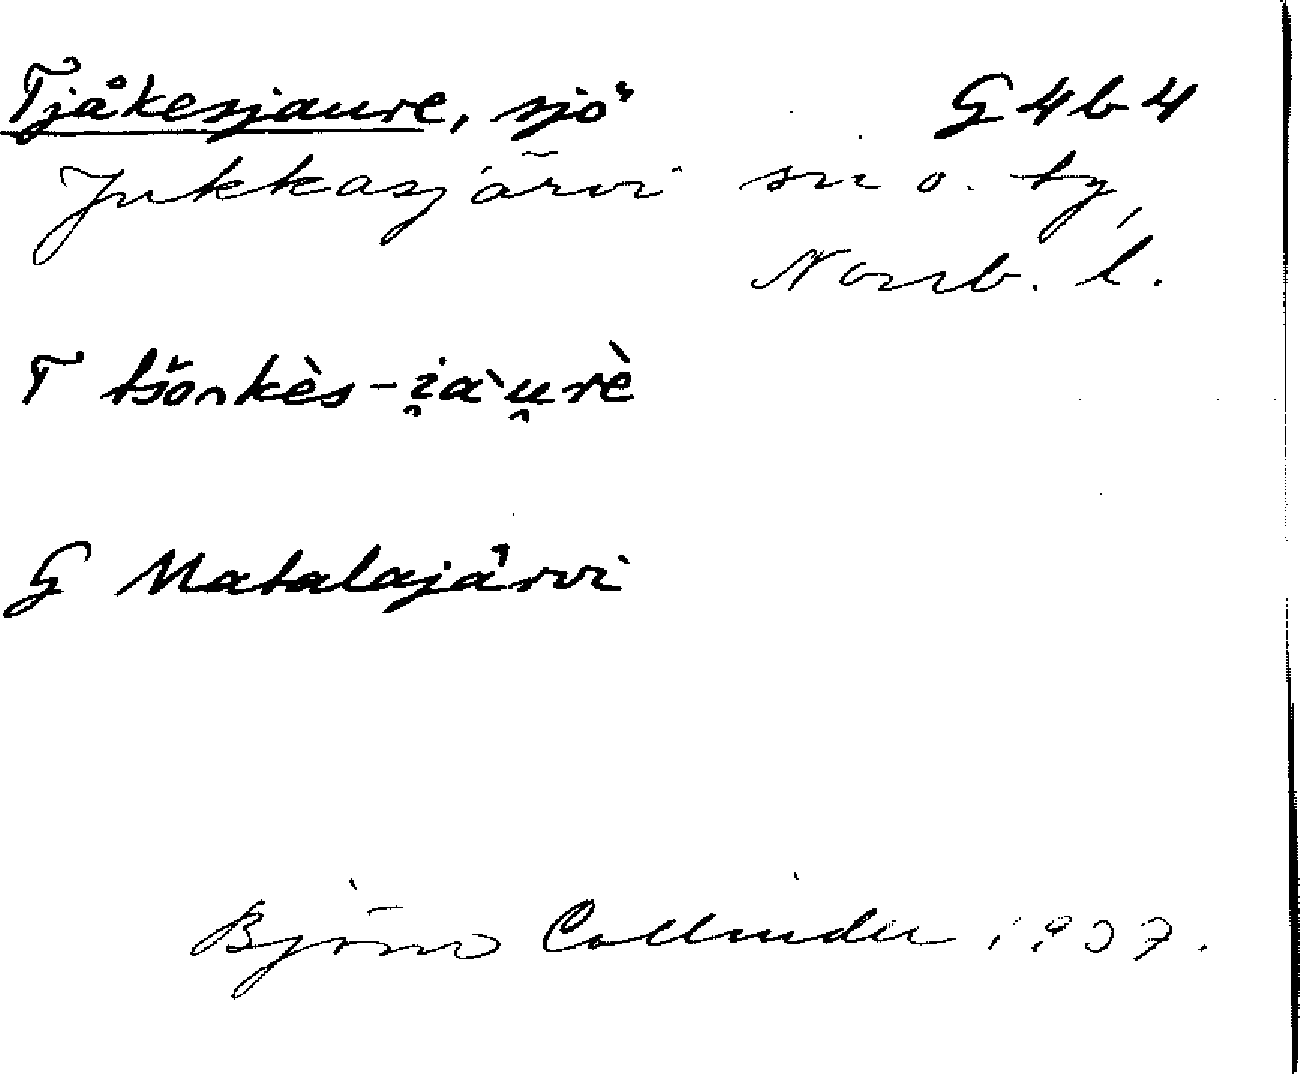 Tjåkesjaure, sjö G4b4
Jukkasjärvi sn o. tg,
Norrb. l.
T tšoņkès-i̯àu̯rè
G Matalajärvi
Björn Collinder 1937.